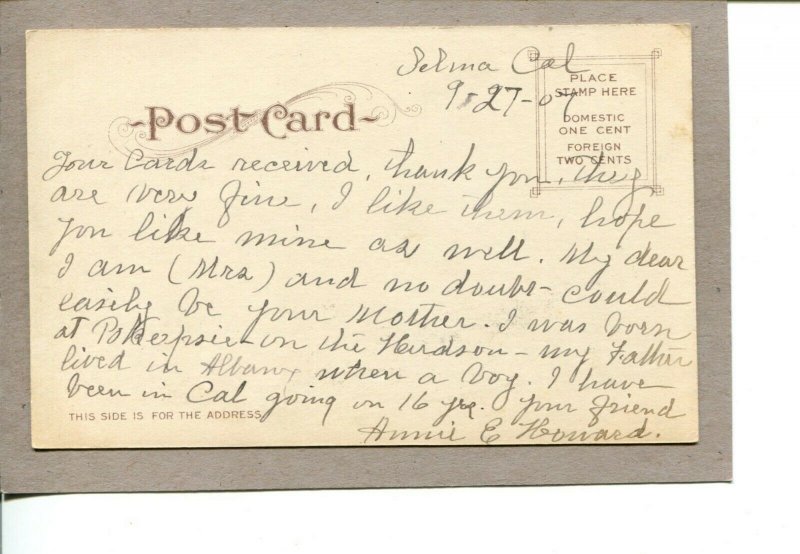 Selma Cal
9-27-07
PLACE
STAMP HERE
DOMESTIC
ONE CENT
FOREIGN
TWO CENTS
Post Card
Your Cards received, thank you, they
are very fine, I like them, hope
you like mine as well. My dear
I am (Mrs) and no doubt - could
easily be your Mother. I was born
at Pokeepsie - on the Hudson - my Father
lived in Albany when a boy. I have
been in Cal going on 16 yrs. Your friend
THIS SIDE IS FOR THE ADDRESS
Annie E Howard.